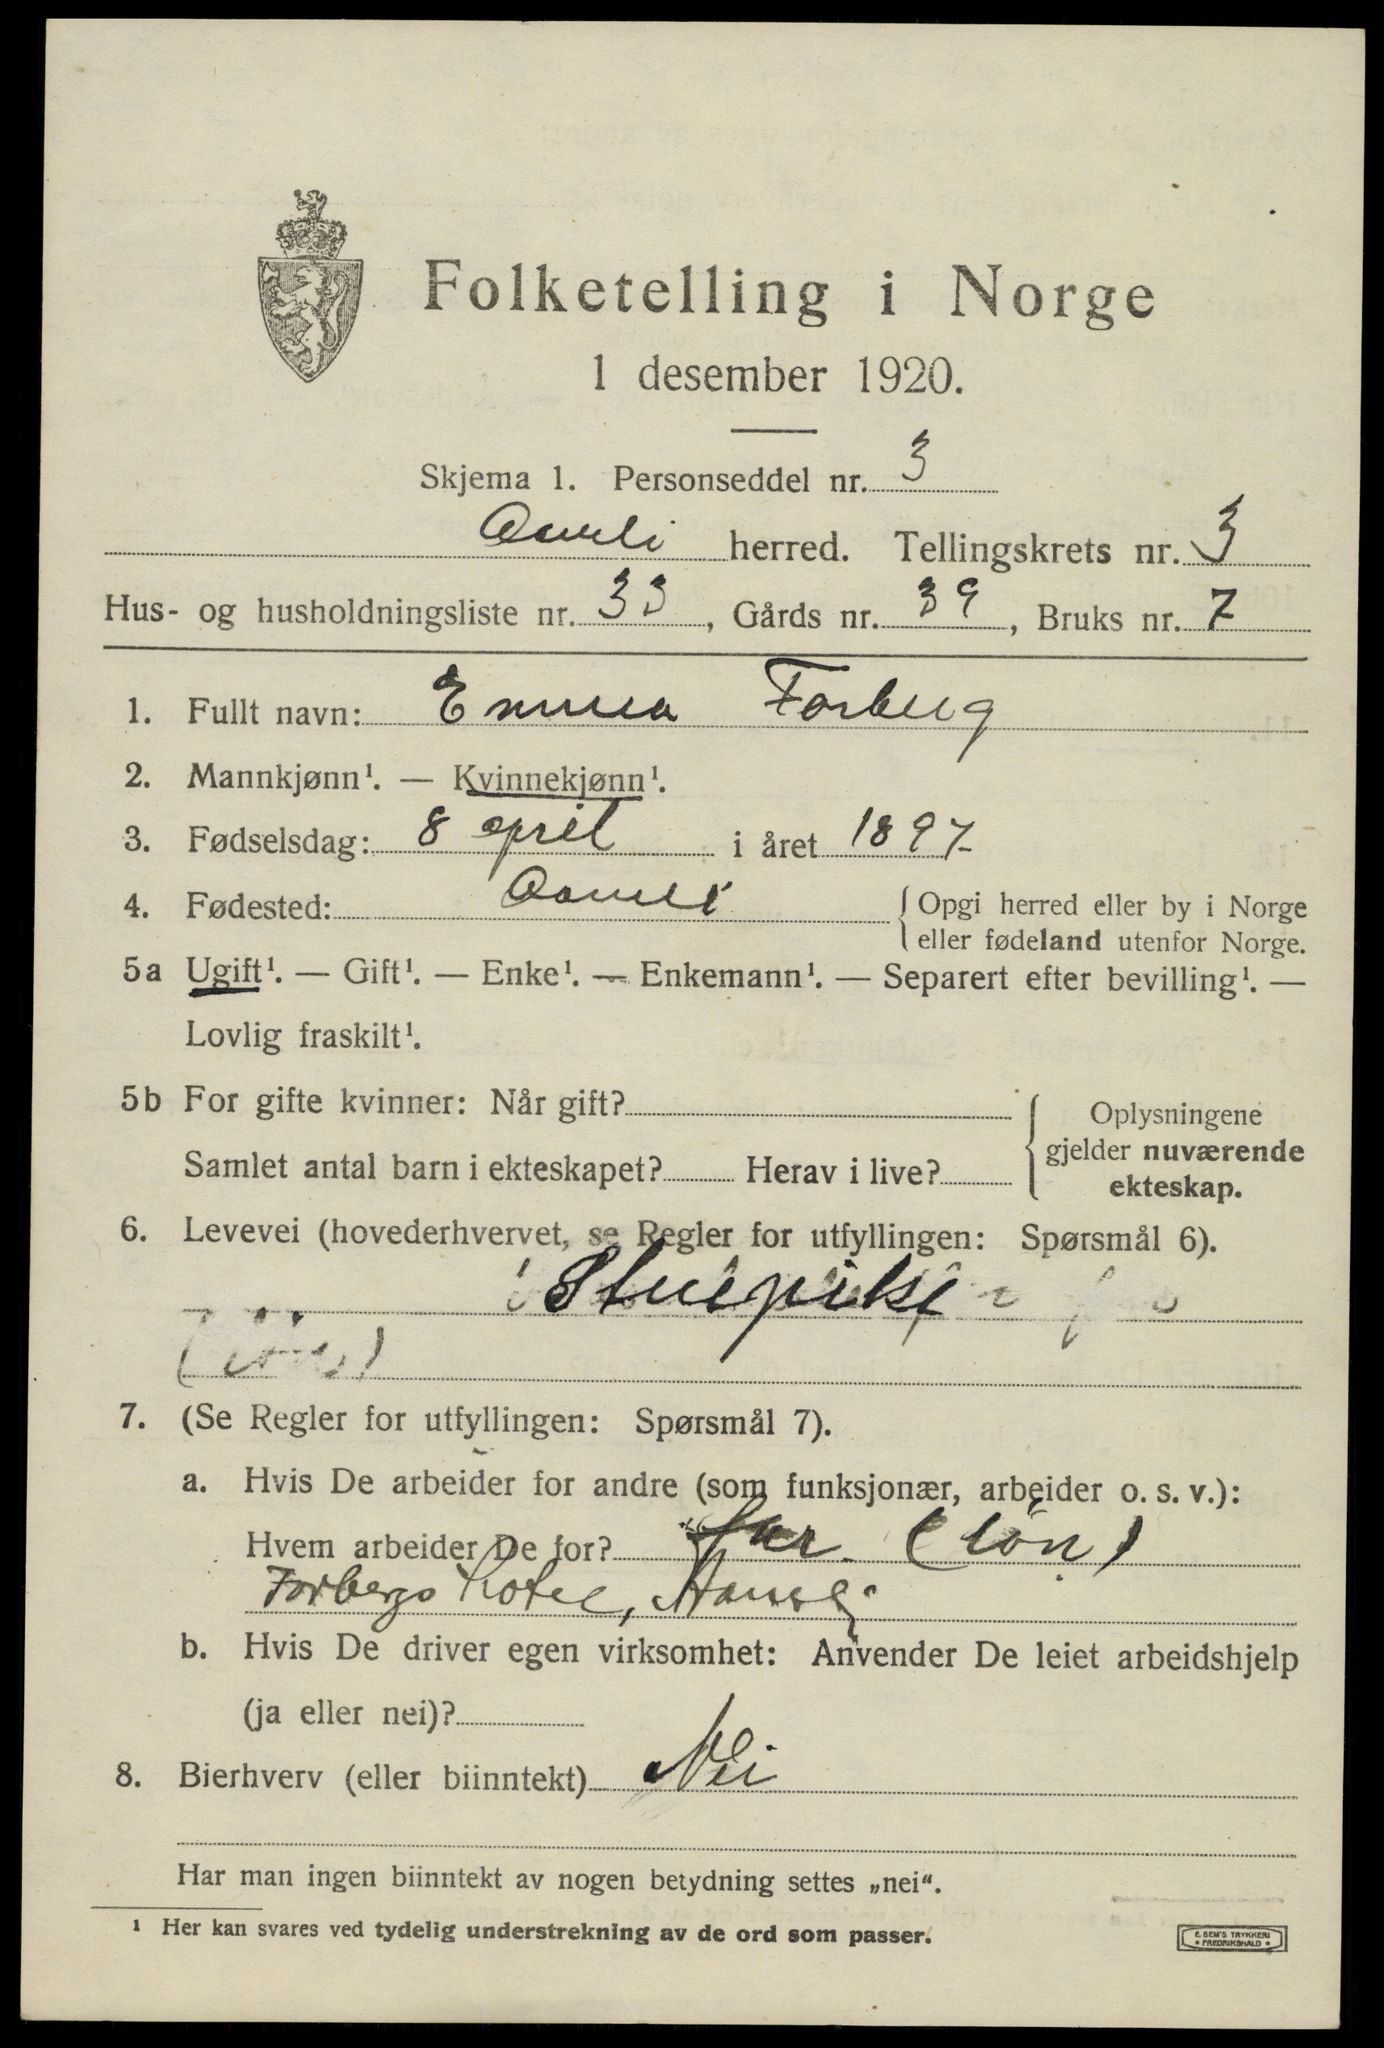 Folketelling i Norge
1 desember 1920.
Skjema 1. Personseddel nr. 3
Aamli herred. Tellingskrets nr. 3
Hus- og husholdningsliste nr. 33, Gårds nr. 39, Bruks nr. 7
1. Fullt navn: Emma Forberg
2. Mannkjønn¹. — Kvinnekjønn¹.
3. Fødselsdag: 8 april i året 1897
4. Fødested: Aamli { Opgi herred eller by i Norge
eller fødeland utenfor Norge.
5a Ugift¹. — Gift¹. — Enke¹. — Enkemann¹. — Separert efter bevilling¹. —
Lovlig fraskilt¹.
5b For gifte kvinner: Når gift?
Samlet antal barn i ekteskapet? Herav i live?
{ Oplysningene
gjelder nuværende
ekteskap.
6. Levevei (hovederhvervet, se Regler for utfyllingen: Spørsmål 6).
Stuepike
7. (Se Regler for utfyllingen: Spørsmål 7).
a. Hvis De arbeider for andre (som funksjonær, arbeider o. s. v.):
Hvem arbeider De for? far. (løn)
Forbergs Hotel,
b. Hvis De driver egen virksomhet: Anvender De leiet arbeidshjelp
(ja eller nei)?
8. Bierhverv (eller biinntekt) Nei
Har man ingen biinntekt av nogen betydning settes „nei“.
¹ Her kan svares ved tydelig understrekning av de ord som passer.
E. SEM'S TRYKKERI
• FREDRIKSHALD •